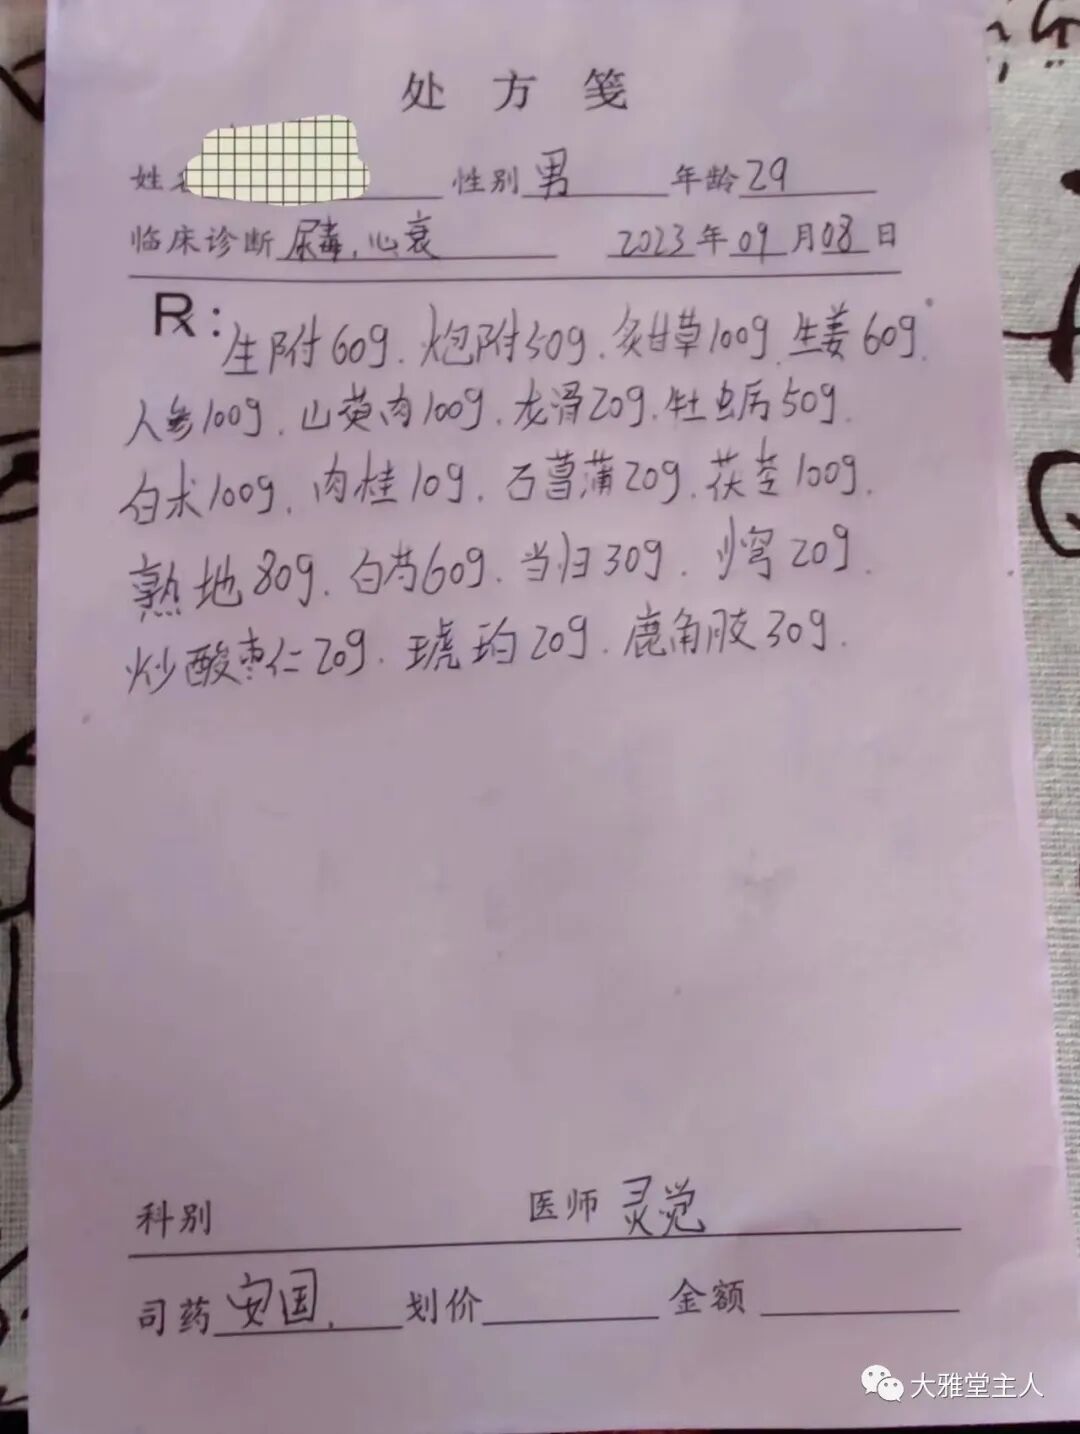 处方笺
姓 性别 男 年龄 29
临床诊断 尿毒，心衰 2023年09月08日
R:
生附60g、炮附50g、炙甘草100g、生姜60g、
人参100g、山萸肉100g、龙骨20g、牡蛎50g、
白术100g、肉桂10g、石菖蒲20g、茯苓100g、
熟地80g、白芍60g、当归30g、川芎20g、
炒酸枣仁20g、琥珀20g、鹿角胶30g、
科别 医师 灵觉
司药 安国 划价 金额
大雅堂主人